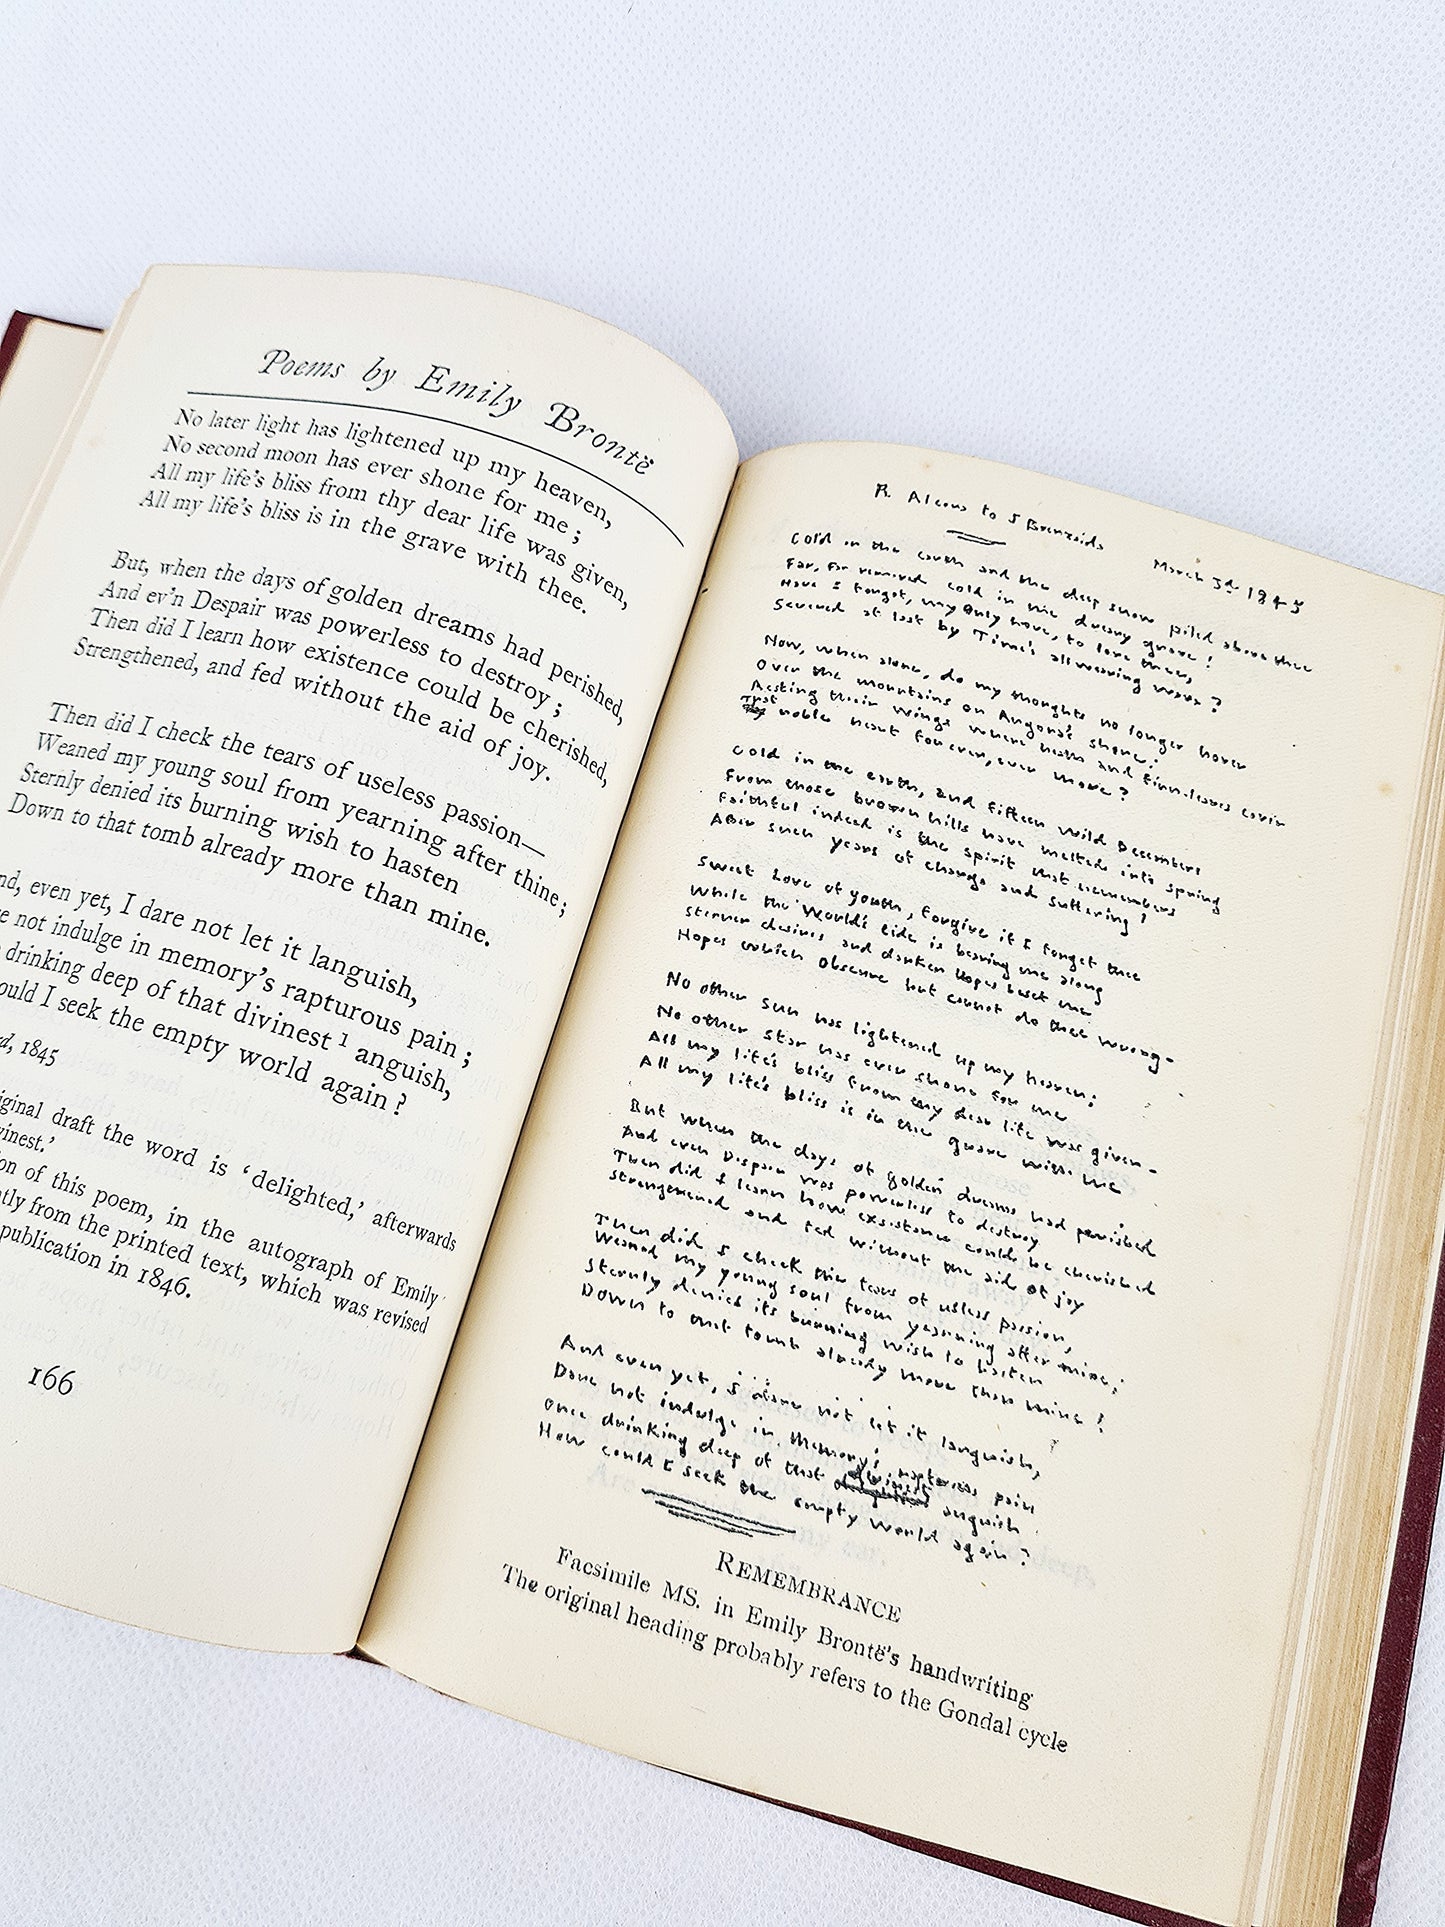 Poems by Emily Brontë
No later light has lightened up my heaven,
No second moon has ever shone for me;
All my life's bliss from thy dear life was given,
All my life's bliss is in the grave with thee.
But, when the days of golden dreams had perished,
And ev'n Despair was powerless to destroy;
Then did I learn how existence could be cherished,
Strengthened, and fed without the aid of joy.
Then did I check the tears of useless passion—
Weaned my young soul from yearning after thine;
Sternly denied its burning wish to hasten
Down to that tomb already more than mine.
nd, even yet, I dare not let it languish,
e not indulge in memory's rapturous pain;
drinking deep of that divinest¹ anguish,
ould I seek the empty world again?
d, 1845
iginal draft the word is 'delighted,' afterwards
vinest.'
on of this poem, in the autograph of Emily
tly from the printed text, which was revised
publication in 1846.
166
R. Alcona to J Brenzaida
March 3d 1845
Cold in the earth and the deep snow piled above thee
Far, far removed cold in the dreary grave!
Have I forgot, my Only Love, to love thee,
Severed at last by Time's all wearing wave?
Now, when alone, do my thoughts no longer hover
Over the mountains on Angora's shore;
Resting their wings where heath and fern-leaves cover
That noble heart for ever, ever more?
Cold in the earth, and fifteen wild Decembers
From those brown hills have melted into spring
Faithful indeed is the spirit that remembers
After such years of change and suffering!
Sweet Love of youth, forgive if I forget thee
While the World's tide is bearing me along
Sterner desires and darker Hopes beset me
Hopes which obscure but cannot do thee wrong-
No other Sun has lightened up my heaven;
No other Star has ever shone for me
All my life's bliss from thy dear life was given-
All my life's bliss is in the grave with thee
But when the days of golden dreams had perished
And even Despair was powerless to destroy
Then did I learn how existance could be cherished
Strengthened and fed without the aid of joy
Then did I check the tears of usless passion,
Weaned my young soul from yearning after thine;
Sternly denied its burning wish to hasten
Down to that tomb already more than mine!
And even yet, I dare not let it languish,
Dare not indulge in Memory's rapturous pain
Once drinking deep of that divinest anguish
How could I seek the empty world again?
REMEMBRANCE
Facsimile MS. in Emily Brontë's handwriting
The original heading probably refers to the Gondal cycle